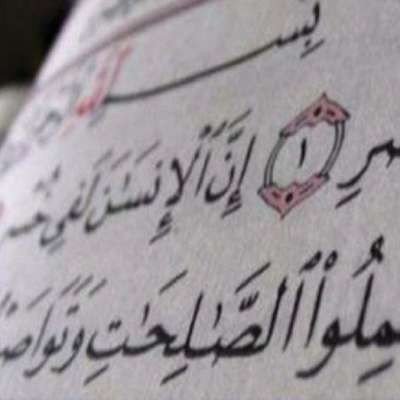 بِسْـ
ـصْرِ ١ إِنَّ ٱلْإِنسَٰنَ لَفِى خُسْـ
ـمِلُوا۟ ٱلصَّٰلِحَٰتِ وَتَوَاصَـ